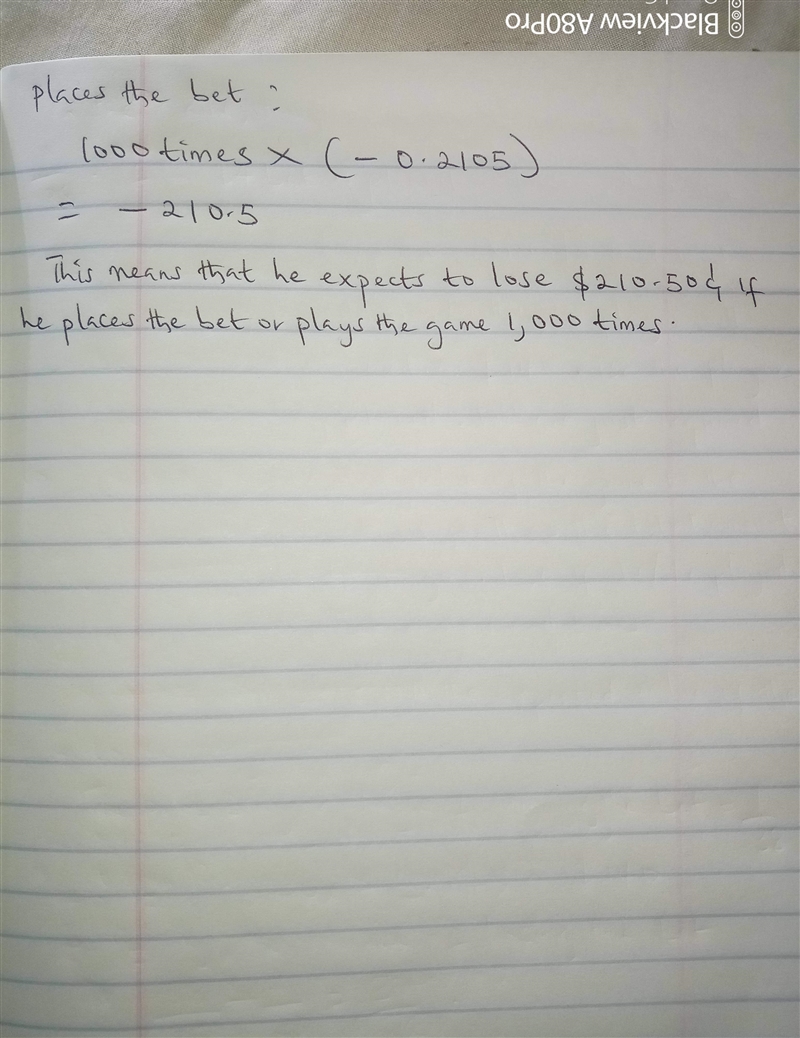 Blackview A80Pro
places the bet :
1000 times × (- 0.2105)
= - 210.5
This means that he expects to lose $210.50 if
he places the bet or plays the game 1,000 times.